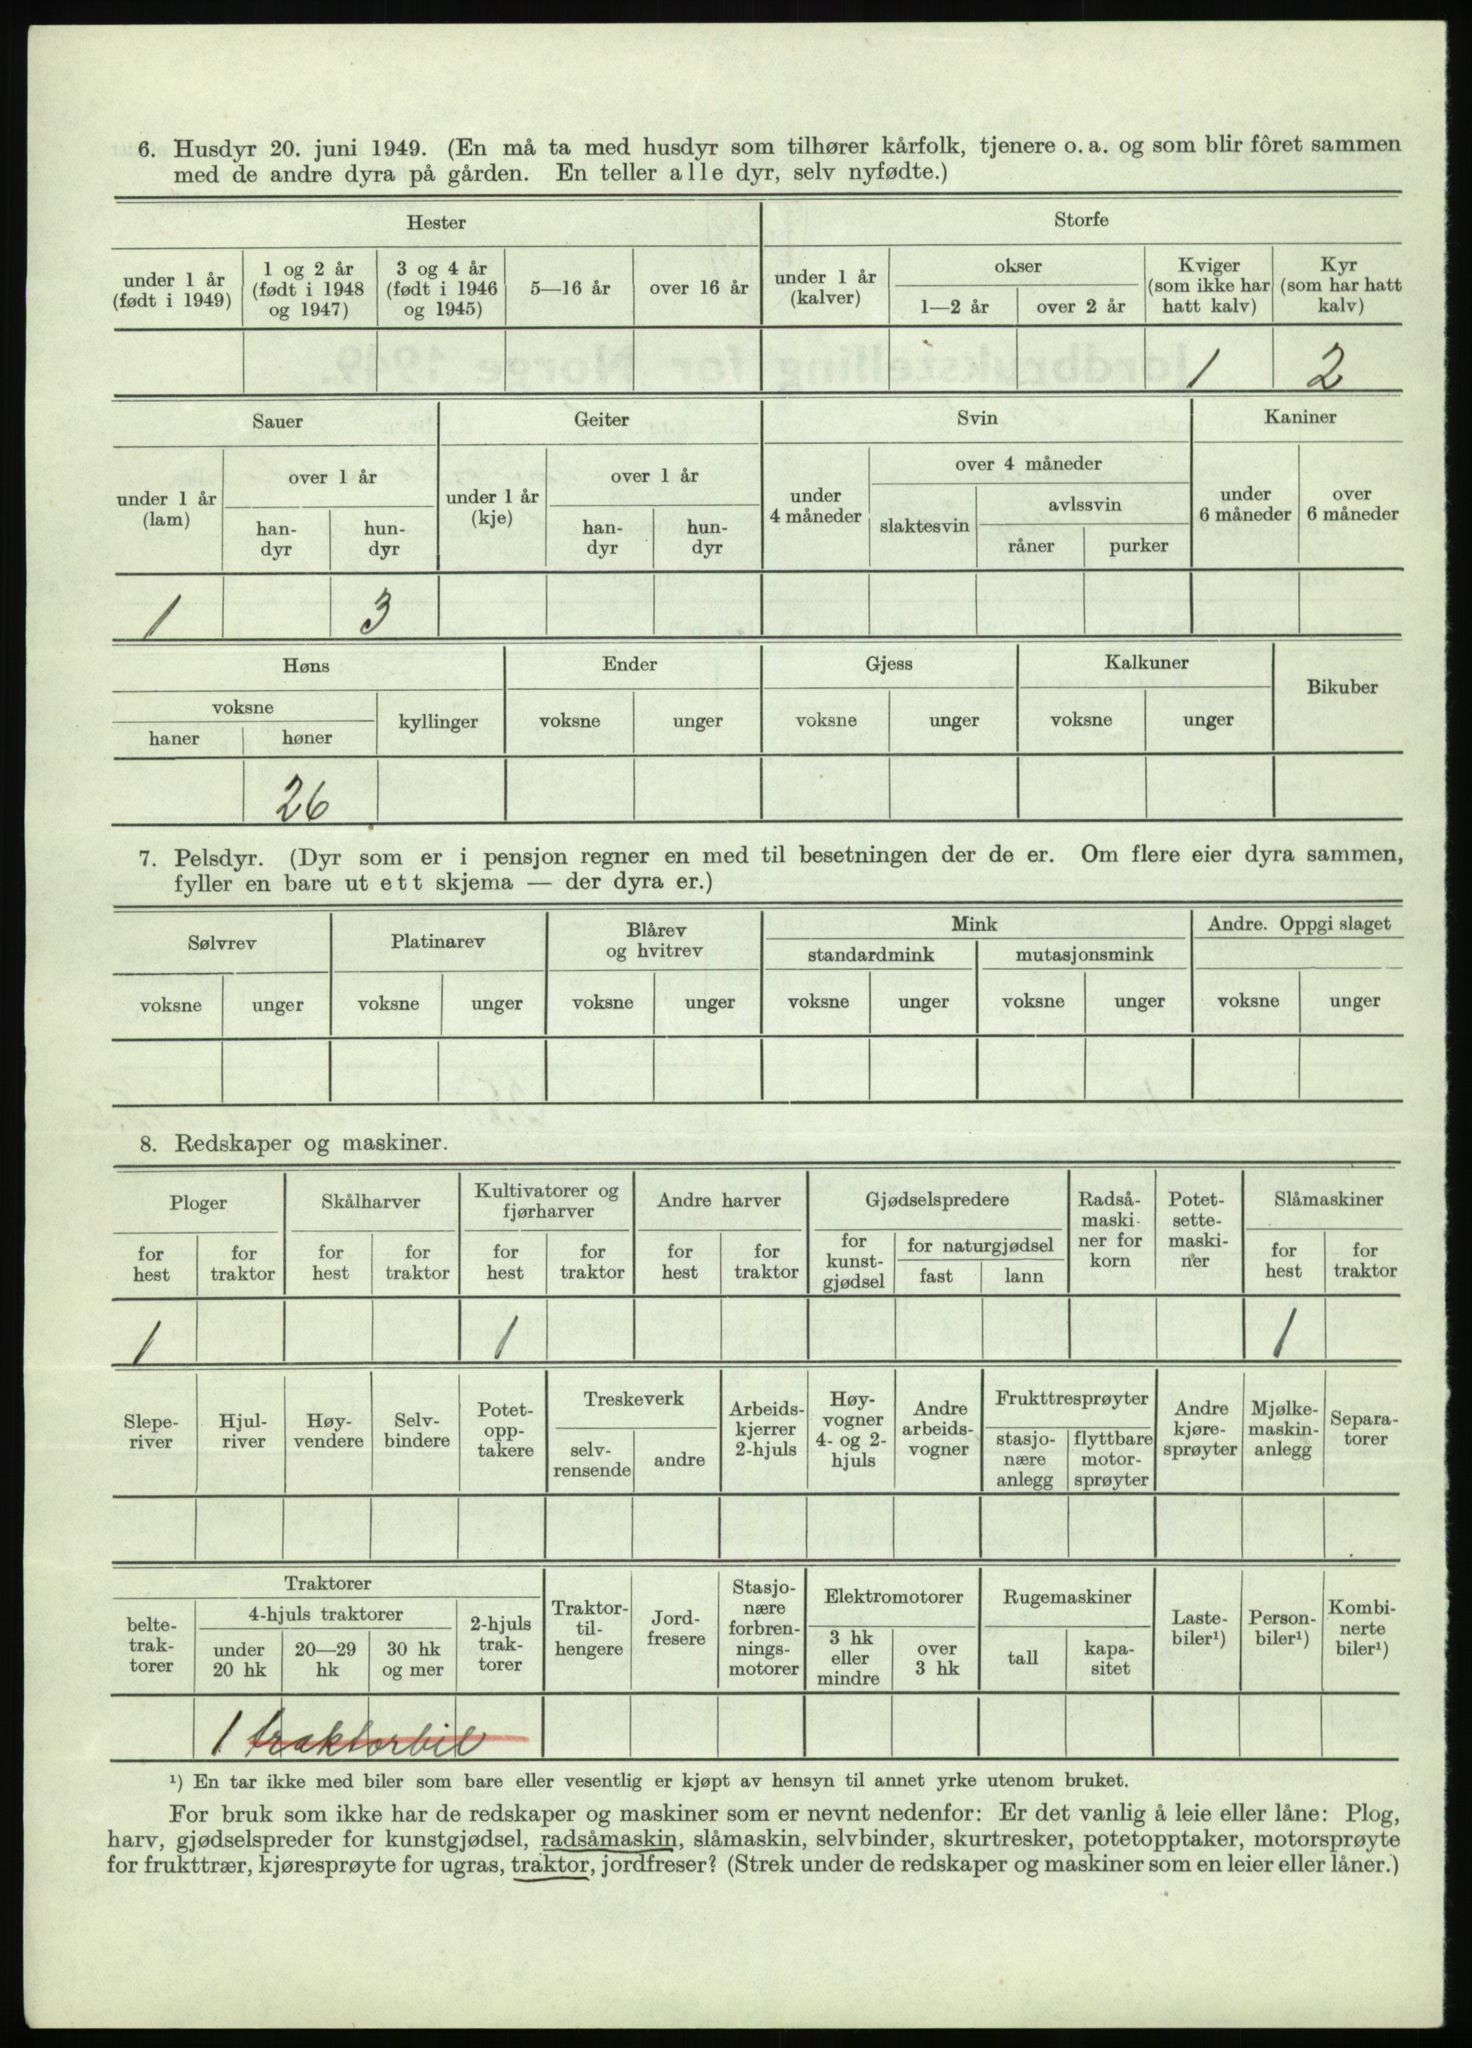 6. Husdyr 20. juni 1949. (En må ta med husdyr som tilhører kårfolk, tjenere o. a. og som blir fôret sammen
med de andre dyra på gården. En teller alle dyr, selv nyfødte.)
Hester Storfe
under 1 år (født i 1949) 1 og 2 år (født i 1948 og 1947) 3 og 4 år (født i 1946 og 1945) 5—16 år over 16 år under 1 år (kalver) okser 1—2 år over 2 år Kviger (som ikke har hatt kalv) Kyr (som har hatt kalv)
1 2
Sauer Geiter Svin Kaniner
under 1 år (lam) over 1 år handyr hundyr under 1 år (kje) over 1 år handyr hundyr under 4 måneder over 4 måneder slaktesvin avlssvin råner purker under 6 måneder over 6 måneder
1 3
Høns Ender Gjess Kalkuner Bikuber
voksne haner høner kyllinger voksne unger voksne unger voksne unger
26
7. Pelsdyr. (Dyr som er i pensjon regner en med til besetningen der de er. Om flere eier dyra sammen,
fyller en bare ut ett skjema — der dyra er.)
Sølvrev Platinarev Blårev og hvitrev Mink Andre. Oppgi slaget
standardmink mutasjonsmink
voksne unger voksne unger voksne unger voksne unger voksne unger voksne unger
8. Redskaper og maskiner.
Ploger Skålharver Kultivatorer og fjørharver Andre harver Gjødselspredere Radsåmaskiner for korn Potetsettemaskiner Slåmaskiner
for hest for traktor for hest for traktor for hest for traktor for hest for traktor for kunstgjødsel for naturgjødsel fast lann for hest for traktor
1 1 1
Sleperiver Hjulriver Høyvendere Selvbindere Potetopptakere Treskeverk selvrensende andre Arbeidskjerrer 2-hjuls Høyvogner 4- og 2-hjuls Andre arbeidsvogner Frukttresprøyter stasjonære anlegg flyttbare motorsprøyter Andre kjøresprøyter Mjølkemaskinanlegg Separatorer
Traktorer
beltetraktorer 4-hjuls traktorer under 20 hk 20—29 hk 30 hk og mer 2-hjuls traktorer Traktortilhengere Jordfresere Stasjonære forbrenningsmotorer Elektromotorer 3 hk eller mindre over 3 hk Rugemaskiner tall kapasitet Lastebiler¹) Personbiler¹) Kombinerte biler¹)
1 traktorbil
¹) En tar ikke med biler som bare eller vesentlig er kjøpt av hensyn til annet yrke utenom bruket.
For bruk som ikke har de redskaper og maskiner som er nevnt nedenfor: Er det vanlig å leie eller låne: Plog,
harv, gjødselspreder for kunstgjødsel, radsåmaskin, slåmaskin, selvbinder, skurtresker, potetopptaker, motorsprøyte
for frukttrær, kjøresprøyte for ugras, traktor, jordfreser? (Strek under de redskaper og maskiner som en leier eller låner.)